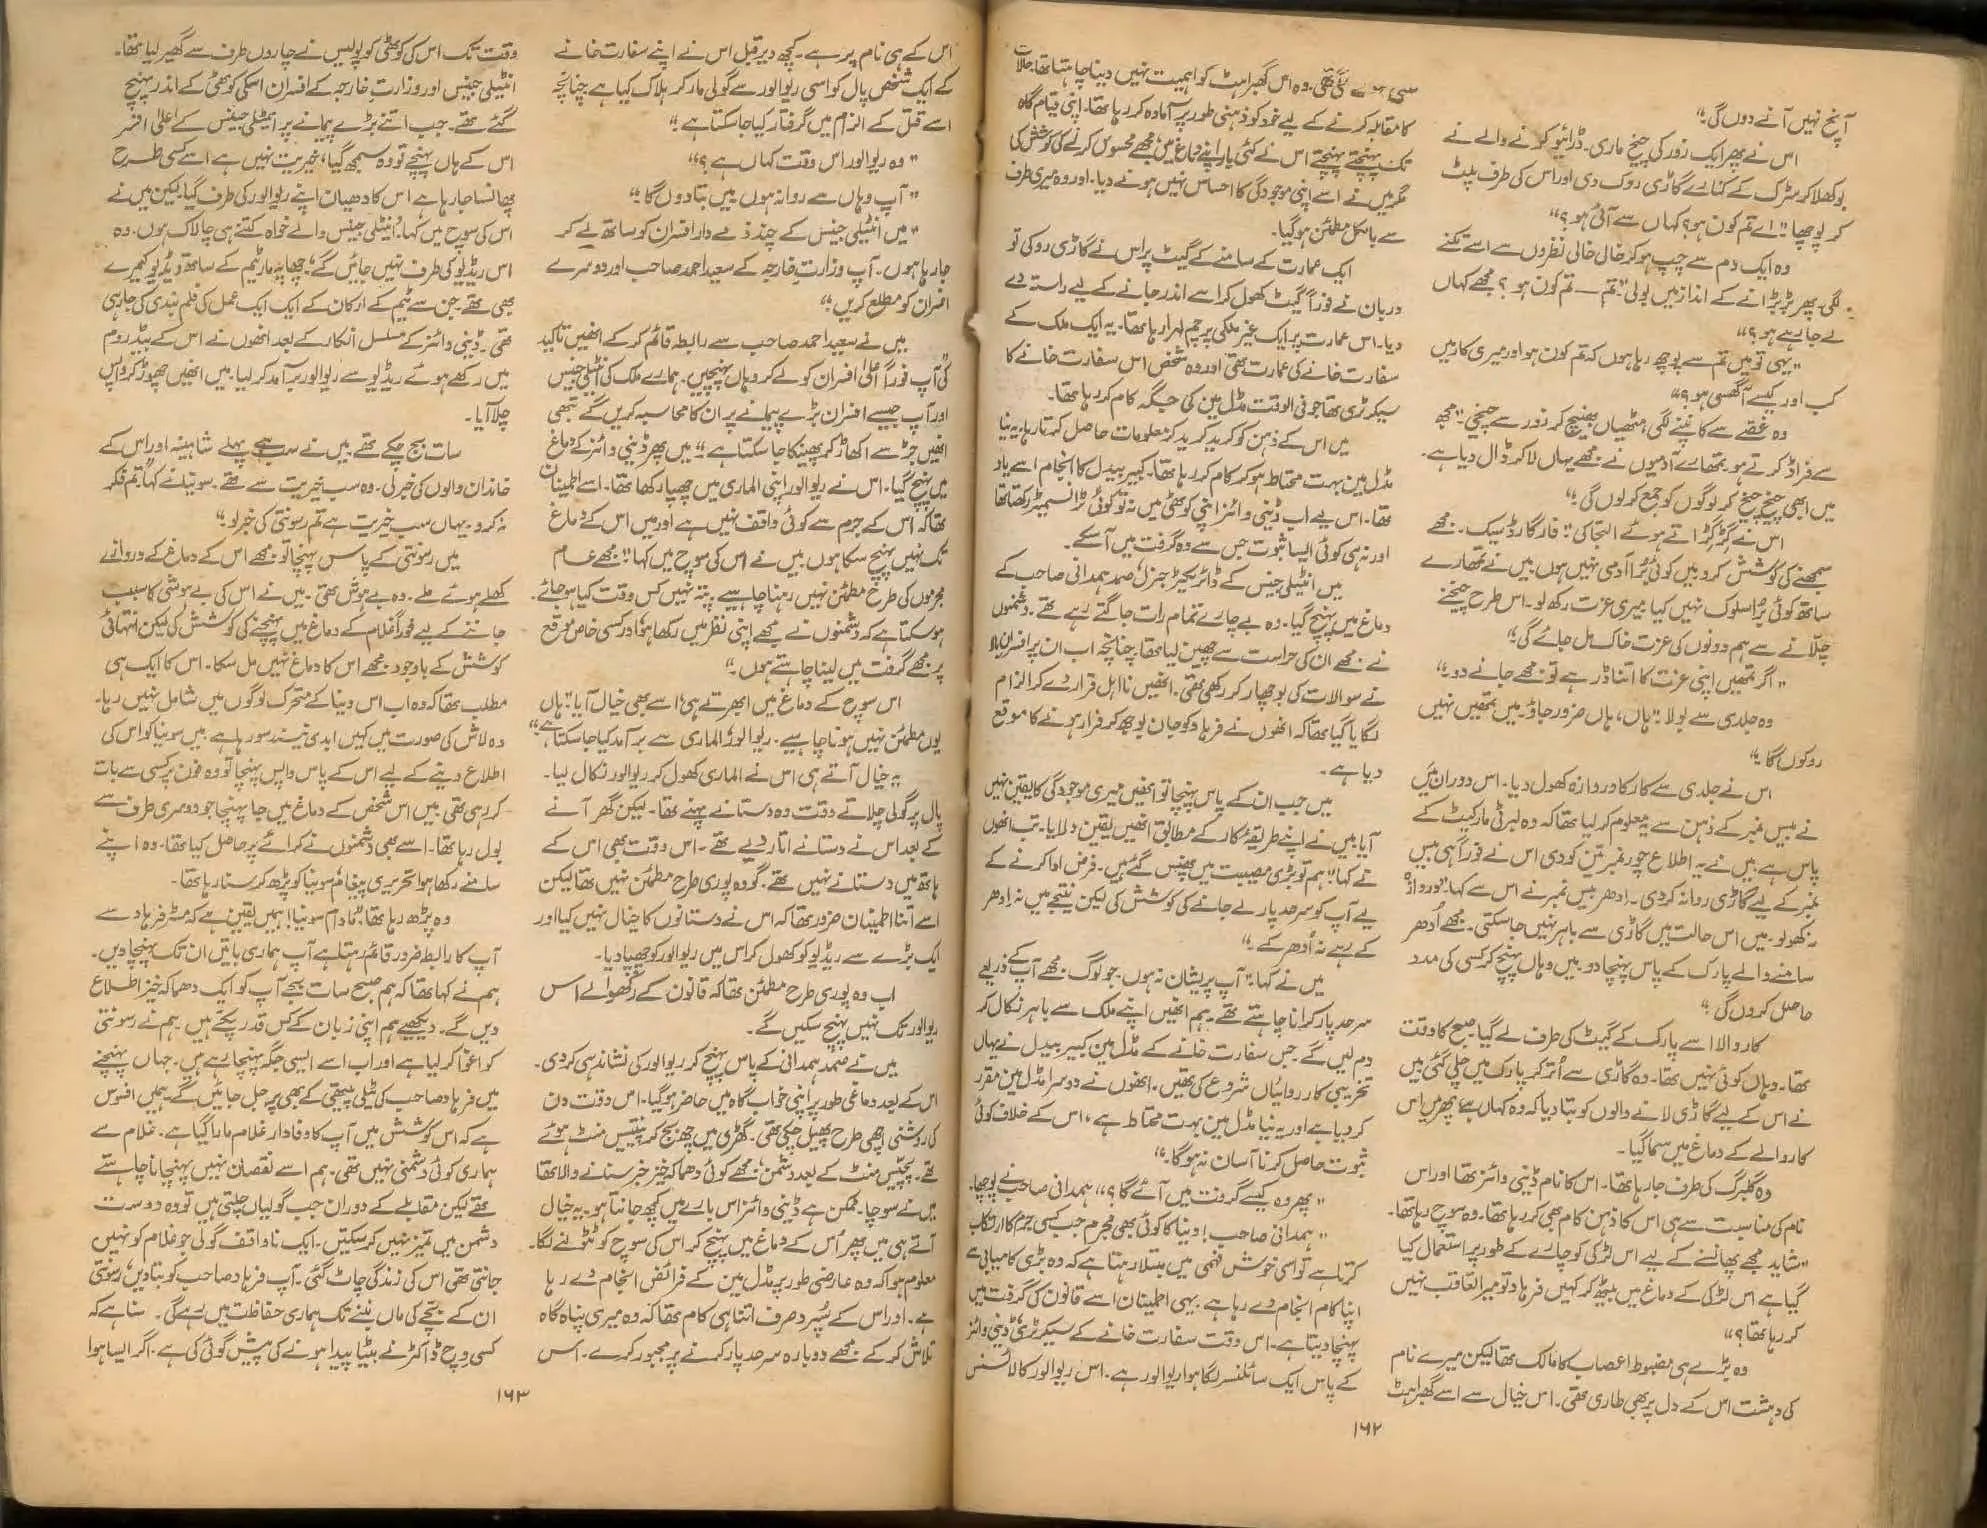 آنچ نہیں آنے دوں گی۔"
اس نے پھر ایک زور کی چیخ ماری۔ ڈرائیو کرنے والے نے
بوکھلا کر سڑک کے کنارے گاڑی روک دی اور اس کی طرف پلٹ
کر پوچھا "اے تم کون ہو؟ کہاں سے آئی ہو؟"
وہ ایک دم سے چپ ہو کر خالی خالی نظروں سے اسے تکنے
لگی۔ پھر بڑبڑانے کے انداز میں بولی "تم — تم کون ہو؟ مجھے کہاں
لے جا رہے ہو؟"
"یہی تو میں تم سے پوچھ رہا ہوں کہ تم کون ہو اور میری کار میں
کب اور کیسے آ گھسی ہو؟"
وہ غصے سے کانپنے لگی۔ مٹھیاں بھینچ کر زور سے چیخی۔ "مجھ
سے فراڈ کرتے ہو۔ تمھارے آدمیوں نے مجھے یہاں لا کر ڈال دیا ہے۔
میں ابھی چیخ چیخ کر لوگوں کو جمع کر لوں گی۔"
اس نے گڑگڑاتے ہوئے التجا کی "فار گاڈ سیک۔ مجھے
سمجھنے کی کوشش کرو۔ میں کوئی بُرا آدمی نہیں ہوں۔ میں نے تمھارے
ساتھ کوئی بُرا سلوک نہیں کیا۔ میری عزت رکھ لو۔ اس طرح چیخنے
چلّانے سے ہم دونوں کی عزت خاک میں مل جائے گی۔"
"اگر تمھیں اپنی عزت کا اتنا ڈر ہے تو مجھے جانے دو۔"
وہ جلدی سے بولا "ہاں، ہاں ضرور جاؤ۔ میں تمھیں نہیں
روکوں گا۔"
اس نے جلدی سے کار کا دروازہ کھول دیا۔ اس دوران میں
نے بیس نمبر کے ذہن سے یہ معلوم کر لیا تھا کہ وہ لبرٹی مارکیٹ کے
پاس ہے۔ میں نے یہ اطلاع چور نمبر تین کو دی اس نے فوراً ہی بیس
نمبر کے لیے گاڑی روانہ کر دی۔ ادھر بیس نمبر نے اس سے کہا۔ "دروازہ
نہ کھولو۔ میں اس حالت میں گاڑی سے باہر نہیں جا سکتی۔ مجھے اُدھر
سامنے والے پارک کے پاس پہنچا دو۔ میں وہاں پہنچ کر کسی کی مدد
حاصل کروں گی۔"
کار والا اسے پارک کے گیٹ کی طرف لے گیا۔ صبح کا وقت
تھا۔ وہاں کوئی نہیں تھا۔ وہ گاڑی سے اُتر کر پارک میں چلی گئی۔ میں
نے اس کے لیے گاڑی لانے والوں کو بتا دیا کہ وہ کہاں ہے، پھر میں اس
کار والے کے دماغ میں سما گیا۔
وہ گلبرگ کی طرف جا رہا تھا۔ اس کا نام ڈینی وائز تھا اور اس
نام کی مناسبت سے ہی اس کا ذہن کام بھی کر رہا تھا۔ وہ سوچ رہا تھا۔
"شاید مجھے پھانسنے کے لیے اس لڑکی کو چارے کے طور پر استعمال کیا
گیا ہے اس لڑکی کے دماغ میں بیٹھ کر کہیں فرہاد تو میرا تعاقب نہیں
کر رہا تھا؟"
وہ بڑے ہی مضبوط اعصاب کا مالک تھا لیکن میرے نام
کی دہشت اس کے دل پر بھی طاری تھی۔ اس خیال سے اسے گھبراہٹ
سی ہونے لگی تھی۔ وہ اس گھبراہٹ کو اہمیت نہیں دینا چاہتا تھا حالات
کا مقابلہ کرنے کے لیے خود کو ذہنی طور پر آمادہ کر رہا تھا۔ اپنی قیام گاہ
تک پہنچتے پہنچتے اس نے کئی بار اپنے دماغ میں مجھے محسوس کرنے کی کوشش کی
مگر میں نے اسے اپنی موجودگی کا احساس نہیں ہونے دیا۔ اور وہ میری طرف
سے بالکل مطمئن ہو گیا۔
ایک عمارت کے سامنے کے گیٹ پر اس نے گاڑی روکی تو
دربان نے فوراً گیٹ کھول کر اسے اندر جانے کے لیے راستہ دے
دیا۔ اس عمارت پر ایک غیر ملکی پرچم لہرا رہا تھا۔ یہ ایک ملک کے
سفارت خانے کی عمارت تھی اور وہ شخص اس سفارت خانے کا
سیکرٹری تھا جو فی الوقت مڈل مین کی جگہ کام کر رہا تھا۔
میں اس کے ذہن کو کرید کرید کر معلومات حاصل کرتا رہا۔ یہ نیا
مڈل مین بہت محتاط ہو کر کام کر رہا تھا۔ کبیر بیدل کا انجام اسے یاد
تھا۔ اس لیے اب ڈینی وائز اپنی کوٹھی میں نہ تو کوئی ٹرانسمیٹر رکھتا تھا
اور نہ ہی کوئی ایسا ثبوت جس سے وہ گرفت میں آ سکے۔
میں انٹیلی جینس کے ڈائریکٹر جنرل صمد ہمدانی صاحب کے
دماغ میں پہنچ گیا۔ وہ بے چارے تمام رات جاگتے رہے تھے۔ دشمنوں
نے مجھے ان کی حراست سے چھین لیا تھا چنانچہ اب ان پر افسران بالا
نے سوالات کی بوچھار کر رکھی تھی۔ انھیں نا اہل قرار دے کر الزام
لگایا گیا تھا کہ انھوں نے فرہاد کو جان بوجھ کر فرار ہونے کا موقع
دیا ہے۔
میں جب ان کے پاس پہنچا تو انھیں میری موجودگی کا یقین نہیں
آیا۔ میں نے اپنے طریقہ کار کے مطابق انھیں یقین دلایا۔ تب انھوں
نے کہا "ہم تو بڑی مصیبت میں پھنس گئے ہیں۔ فرض ادا کرنے کے
لیے آپ کو سرحد پار لے جانے کی کوشش کی لیکن نتیجے میں نہ اِدھر
کے رہے نہ اُدھر کے۔"
میں نے کہا "آپ پریشان نہ ہوں۔ جو لوگ مجھے آپ کے ذریعے
سرحد پار کرانا چاہتے تھے۔ ہم انھیں اپنے ملک سے باہر نکال کر
دم لیں گے۔ جس سفارت خانے کے مڈل مین کبیر بیدل نے یہاں
تخریبی کارروائیاں شروع کی تھیں۔ انھوں نے دوسرا مڈل مین مقرر
کر دیا ہے اور یہ نیا مڈل مین بہت محتاط ہے، اس کے خلاف کوئی
ثبوت حاصل کرنا آسان نہ ہوگا۔"
"پھر وہ کیسے گرفت میں آئے گا؟" ہمدانی صاحب نے پوچھا۔
"ہمدانی صاحب! دنیا کا کوئی بھی مجرم جب کسی جرم کا ارتکاب
کرتا ہے تو اسی خوش فہمی میں مبتلا رہتا ہے کہ وہ بڑی کامیابی سے
اپنا کام انجام دے رہا ہے۔ یہی اطمینان اسے قانون کی گرفت میں
پہنچا دیتا ہے۔ اس وقت سفارت خانے کے سیکرٹری ڈینی وائز
کے پاس ایک سائلنسر لگا ہوا ریوالور ہے۔ اس ریوالور کا لائسنس
۱۶۲
اس کے ہی نام پر ہے۔ کچھ دیر قبل اس نے اپنے سفارت خانے
کے ایک شخص پال کو اسی ریوالور سے گولی مار کر ہلاک کیا ہے چنانچہ
اسے قتل کے الزام میں گرفتار کیا جا سکتا ہے۔"
"وہ ریوالور اس وقت کہاں ہے؟"
"آپ وہاں سے روانہ ہوں۔ میں بتا دوں گا۔"
"میں انٹیلی جینس کے چند ذمے دار افسران کو ساتھ لے کر
جا رہا ہوں۔ آپ وزارت خارجہ کے سعید احمد صاحب اور دوسرے
افسران کو مطلع کریں۔"
میں نے سعید احمد صاحب سے رابطہ قائم کر کے انھیں تاکید
کی "آپ فوراً اعلیٰ افسران کو لے کر وہاں پہنچیں۔ ہمارے ملک کی انٹیلی جینس
اور آپ جیسے افسران بڑے پیمانے پر ان کا محاسبہ کریں گے تبھی
انھیں جڑ سے اکھاڑ کر پھینکا جا سکتا ہے۔" میں پھر ڈینی وائز کے دماغ
میں پہنچ گیا۔ اس نے ریوالور اپنی الماری میں چھپا رکھا تھا۔ اسے اطمینان
تھا کہ اس کے جرم سے کوئی واقف نہیں ہے اور میں اس کے دماغ
تک نہیں پہنچ سکا ہوں۔ میں نے اس کی سوچ میں کہا "مجھے عام
مجرموں کی طرح مطمئن نہیں رہنا چاہیے۔ پتہ نہیں کس وقت کیا ہو جائے۔
ہو سکتا ہے کہ دشمنوں نے مجھے اپنی نظر میں رکھا ہو اور کسی خاص موقع
پر مجھے گرفت میں لینا چاہتے ہوں۔"
اس سوچ کے دماغ میں ابھرتے ہی، اسے بھی خیال آیا "ہاں
یوں مطمئن نہیں ہونا چاہیے۔ ریوالور الماری سے برآمد کیا جا سکتا ہے"
یہ خیال آتے ہی اس نے الماری کھول کر ریوالور نکال لیا۔
پال پر گولی چلاتے وقت وہ دستانے پہنے تھا۔ لیکن گھر آنے
کے بعد اس نے دستانے اتار دیے تھے۔ اس وقت بھی اس کے
ہاتھ میں دستانے نہیں تھے۔ گو وہ پوری طرح مطمئن نہیں تھا لیکن
اسے اتنا اطمینان ضرور تھا کہ اس نے دستانوں کا خیال نہیں کیا اور
ایک بڑے سے ریڈیو کو کھول کر اس میں ریوالور کو چھپا دیا۔
اب وہ پوری طرح مطمئن تھا کہ قانون کے رکھوالے اس
ریوالور تک نہیں پہنچ سکیں گے۔
میں نے صمد ہمدانی کے پاس پہنچ کر ریوالور کی نشاندہی کر دی۔
اس کے بعد دماغی طور پر اپنی خواب گاہ میں حاضر ہو گیا۔ اس وقت دن
کی روشنی اچھی طرح پھیل چکی تھی۔ گھڑی میں چھ بج کر پینتیس منٹ ہوئے
تھے۔ پچیس منٹ کے بعد دشمن، مجھے کوئی دھماکہ خیز خبر سنانے والا تھا
میں نے سوچا۔ ممکن ہے ڈینی وائز اس بارے میں کچھ جانتا ہو۔ یہ خیال
آتے ہی میں پھر اُس کے دماغ میں پہنچ کر اس کی سوچ کو ٹٹولنے لگا۔
معلوم ہوا کہ وہ عارضی طور پر مڈل مین کے فرائض انجام دے رہا
ہے۔ اور اس کے سُپرد صرف اتنا ہی کام تھا کہ وہ میری پناہ گاہ
تلاش کر کے مجھے دوبارہ سرحد پار کرنے پر مجبور کرے۔ اس
وقت تک اس کی کوٹھی کو پولیس نے چاروں طرف سے گھیر لیا تھا۔
انٹیلی جینس اور وزارتِ خارجہ کے افسران اسکی کوٹھی کے اندر پہنچ
گئے تھے۔ جب اتنے بڑے پیمانے پر انٹیلی جینس کے اعلیٰ افسر
اس کے ہاں پہنچے تو وہ سمجھ گیا، خیریت نہیں ہے اسے کسی طرح
پھانسا جا رہا ہے اس کا دھیان اپنے ریوالور کی طرف گیا۔ لیکن میں نے
اس کی سوچ میں کہا "انٹیلی جینس والے خواہ کتنے ہی چالاک ہوں۔ وہ
اس ریڈیو کی طرف نہیں جائیں گے۔" چھاپہ مار ٹیم کے ساتھ ویڈیو کیمرے
بھی تھے جن سے ٹیم کے ارکان کے ایک ایک عمل کی فلم بندی کی جا رہی
تھی۔ ڈینی وائز کے مسلسل انکار کے بعد انھوں نے اس کے بیڈ روم
میں رکھے ہوئے ریڈیو سے ریوالور برآمد کر لیا۔ میں انھیں چھوڑ کر واپس
چلا آیا۔
سات بج چکے تھے میں نے سب سے پہلے شاہینہ اور اس کے
خاندان والوں کی خبر لی۔ وہ سب خیریت سے تھے۔ سونیا نے کہا "تم فکر
نہ کرو۔ یہاں سب خیریت ہے تم رسونتی کی خبر لو۔"
میں رسونتی کے پاس پہنچا تو مجھے اس کے دماغ کے دروازے
کھلے ہوئے ملے۔ وہ بے ہوش تھی۔ میں نے اس کی بے ہوشی کا سبب
جاننے کے لیے فوراً غلام کے دماغ میں پہنچنے کی کوشش کی لیکن انتہائی
کوشش کے باوجود مجھے اس کا دماغ نہیں مل سکا۔ اس کا ایک ہی
مطلب تھا کہ وہ اب اس دنیا کے متحرک لوگوں میں شامل نہیں رہا۔
وہ لاش کی صورت میں کہیں ابدی نیند سو رہا ہے۔ میں سونیا کو اس کی
اطلاع دینے کے لیے اس کے پاس واپس پہنچا تو وہ فون پر کسی سے بات
کر رہی تھی۔ میں اس شخص کے دماغ میں جا پہنچا جو دوسری طرف سے
بول رہا تھا۔ اسے بھی دشمنوں نے کرائے پر حاصل کیا تھا۔ وہ اپنے
سامنے رکھا ہوا تحریری پیغام سونیا کو پڑھ کر سنا رہا تھا۔
وہ پڑھ رہا تھا "مادام سونیا! ہمیں یقین ہے کہ مسٹر فرہاد سے
آپ کا رابطہ ضرور قائم رہتا ہے آپ ہماری باتیں ان تک پہنچا دیں۔
ہم نے کہا تھا کہ ہم صبح سات بجے آپ کو ایک دھماکہ خیز اطلاع
دیں گے۔ دیکھیے ہم اپنی زبان کے کس قدر پکے ہیں۔ ہم نے رسونتی
کو اغوا کر لیا ہے اور اب اسے ایسی جگہ پہنچا رہے ہیں۔ جہاں پہنچنے
میں فرہاد صاحب کی ٹیلی پیتھی کے بھی پر جل جائیں گے۔ ہمیں افسوس
ہے کہ اس کوشش میں آپ کا وفادار غلام مارا گیا ہے۔ غلام سے
ہماری کوئی دشمنی نہیں تھی۔ ہم اسے نقصان نہیں پہنچانا چاہتے
تھے لیکن مقابلے کے دوران جب گولیاں چلتی ہیں تو وہ دوست
دشمن میں تمیز نہیں کر سکتیں۔ ایک نا واقف گولی جو غلام کو نہیں
جانتی تھی اس کی زندگی چاٹ گئی۔ آپ فرہاد صاحب کو بتا دیں، رسونتی
ان کے بچے کی ماں بننے تک ہماری حفاظت میں رہے گی۔ سنا ہے کہ
کسی وچ ڈاکٹر نے بیٹا پیدا ہونے کی پیش گوئی کی ہے۔ اگر ایسا ہوا
۱۶۳